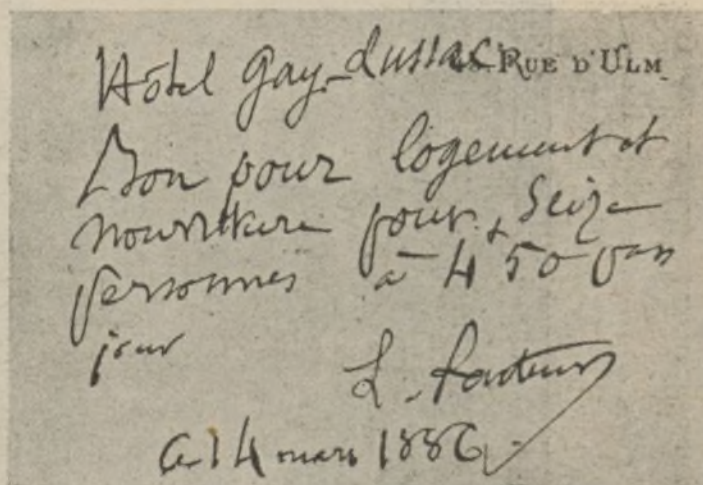 Hôtel Gay-Lussac 45 Rue d'Ulm
Bon pour logement et
nourriture pour Seize
personnes à 4f 50 par
jour
L. Pasteur
ce 14 mars 1886